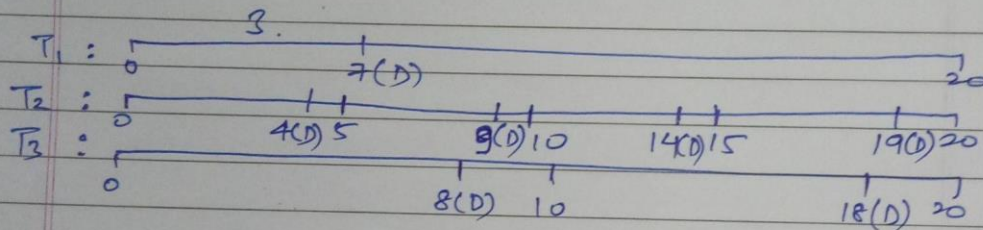 3.
T1 :
0 7(D) 20
T2 :
0 4(D) 5 9(D) 10 14(D) 15 19(D) 20
T3 :
0 8(D) 10 18(D) 20